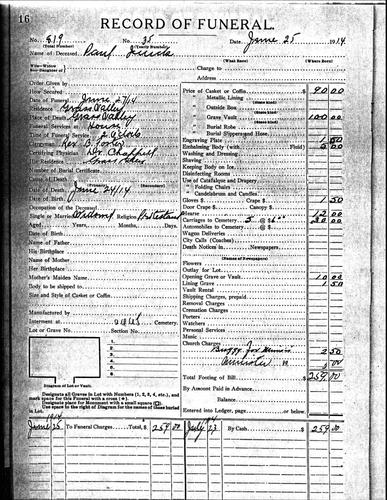 16
RECORD OF FUNERAL
No. 819 No. 35 Date June 25 1914
(Total Number) (Yearly Number)
Name of Deceased Paul
(What Race) (Where Born)
Charge to
Address
Order Given by
How Secured
Date of Funeral June 27/14
Residence Grass Valley
Place of Death Grass Valley
Funeral Services at House
Time of Funeral Service 2 O'clock
Clergyman Rev B. Foster
Certifying Physician Dr
His Residence Grass Valley
Number of Burial Certificate
Cause of Death
(Primary) (Secondary)
Date of Death June 24/14
Date of Birth
Occupation of the Deceased
Single or Married Religion Protestant
Aged Years, Months, Days.
Date of Birth
Name of Father
His Birthplace
Name of Mother
Her Birthplace
Mother's Maiden Name
Body to be shipped to
Size and Style of Casket or Coffin
Manufactured by
Interment at Cemetery.
Lot or Grave No. Section No.
1.
2.
3.
4.
5.
6.
Diagram of Lot or Vault.
Designate all Graves in Lot with Numbers (1, 2, 3, 4, etc.), and
mark space for this Funeral with a cross (+).
Designate place for Monument with a small square (□).
Use space to the right of Diagram for the names of those buried
in Lot.
Price of Casket or Coffin 90.00
" Metallic Lining
(State kind)
" Outside Box
(State kind)
" Grave Vault 100.00
(State kind)
" Burial Robe
(State kind)
" Burial Slippers and Hose
Engraving Plate 1.50
Embalming Body (with Fluid) 5.00
Washing and Dressing
Shaving
Keeping Body on Ice
Disinfecting Rooms
Use of Catafalque and Drapery
" Folding Chairs
" Candelabrum and Candles
Gloves $ Crape $ 1.50
Door Crape $ Canopy $
Hearse 12.00
Carriages to Cemetery 5 @ $6.00 30.00
Automobiles to Cemetery @ $
Wagon Deliveries
City Calls (Coaches)
Death Notices in Newspapers
(Names of Newspapers)
Flowers
Outlay for Lot
Opening Grave or Vault 10.00
Lining Grave 1.50
Vault Rental
Shipping Charges, prepaid
Removal Charges
Cremation Charges
Porters
Watchers
Personal Services
Music
Church Charges
Buggy for Minister 2.50
Minister
Total Footing of Bill $259.00
By Amount Paid in Advance
Balance
Entered into Ledger, page or below.
1914
June 25 To Funeral Charges Total, $ 259.00 July 23 By Cash $ 259.00